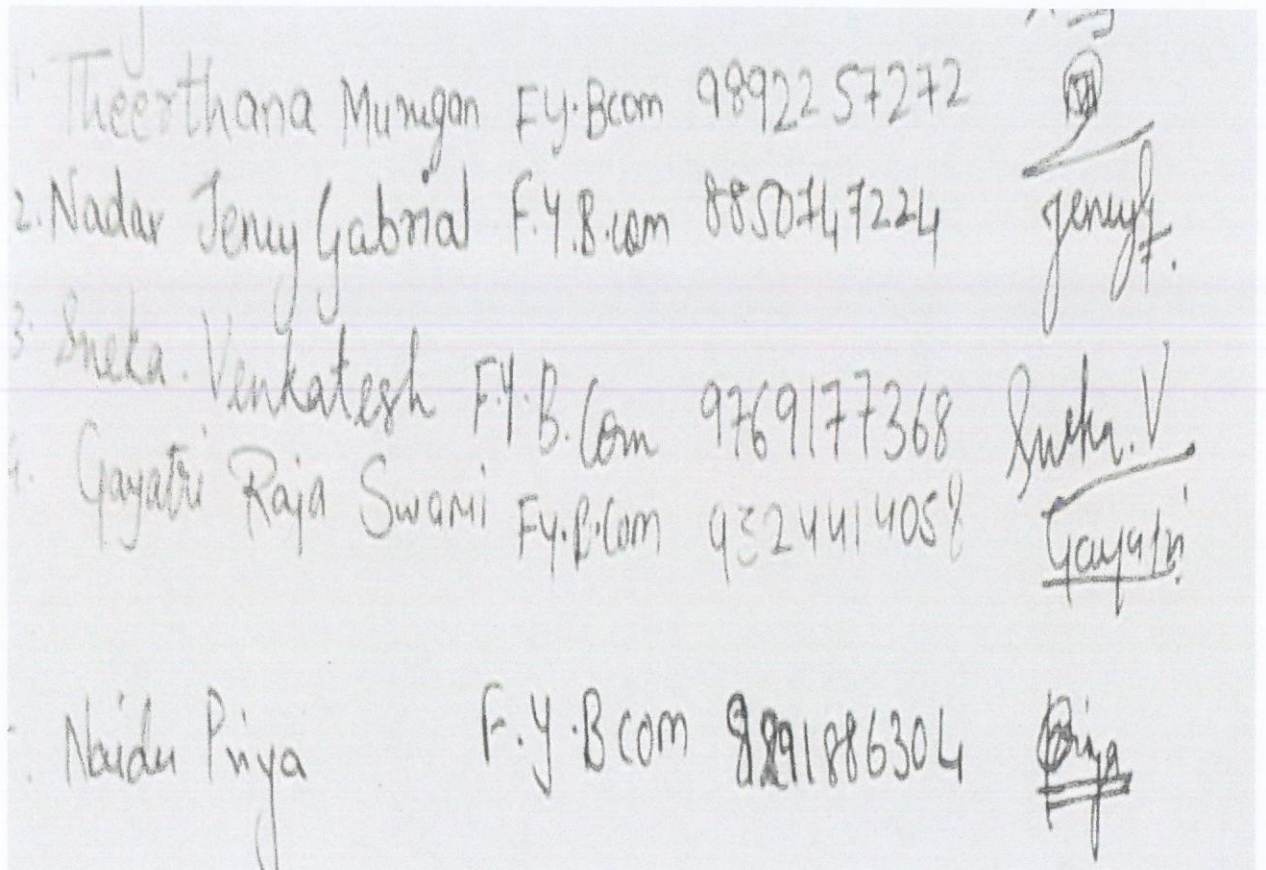 1. Theerthana Murugan F.Y.Bcom 9892257272
2. Nadar Jency Gabrial F.Y.B.com 8850747224 Jency
3. Sneka. Venkatesh F.Y.B.Com 9769177368 Sneka.V
4. Gayatri Raja Swami F.Y.B.Com 9324414058 Gayatri
Naidu Priya F.Y.Bcom Priya